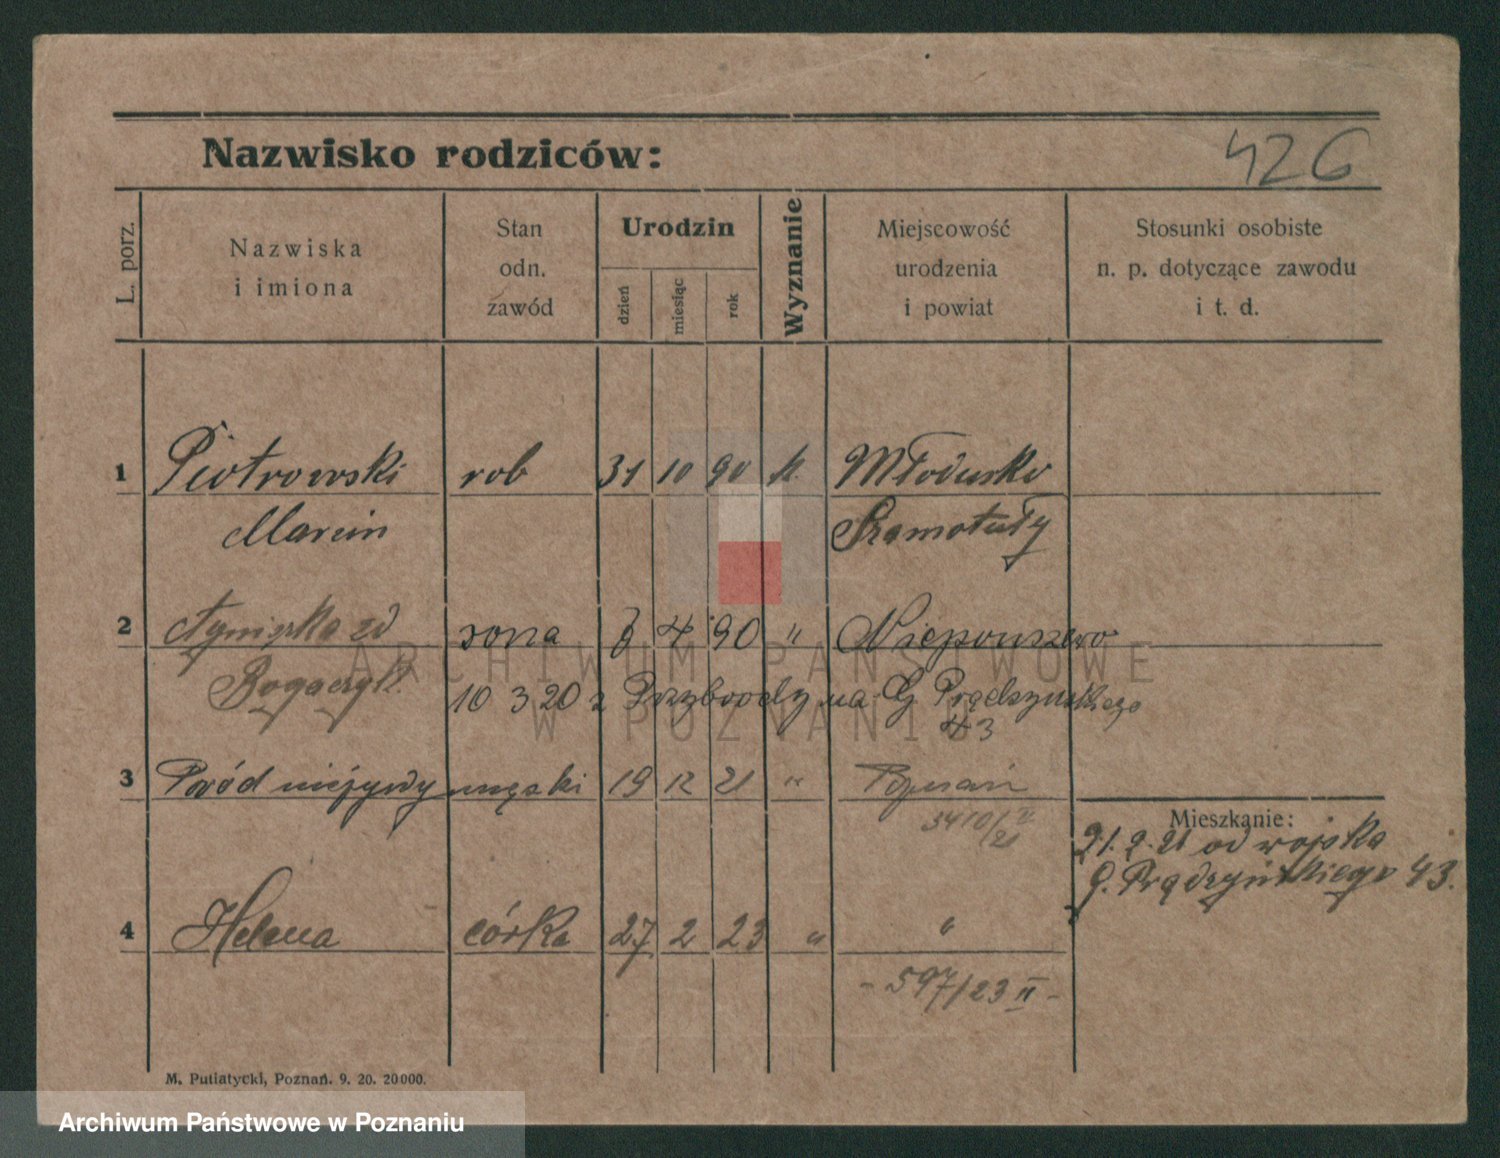 Nazwisko rodziców:
426
L. porz.
Nazwiska
i imiona
Stan
odn.
zawód
Urodzin
dzień
miesiąc
rok
Wyznanie
Miejscowość
urodzenia
i powiat
Stosunki osobiste
n. p. dotyczące zawodu
i t. d.
1 Piotrowski rob 31 10 90 k. Młodusko
Marcin Szamotuły
2 Agnieszka zd żona 4 90 " Niepruszewo
Bogaczyk 10 3 20 z Przybrody na G Prądzyńskiego
43
3 Poród nieżywy męski 19 12 21 " Poznań
3410/21 II
Mieszkanie:
21.2.21 od wojska
G. Prądzyńskiego 43.
4 Helena córka 27 2 23 " "
- 597/23 II -
M. Putiatycki, Poznań. 9. 20. 20000.
ARCHIWUM PAŃSTWOWE
W POZNANIU
Archiwum Państwowe w Poznaniu